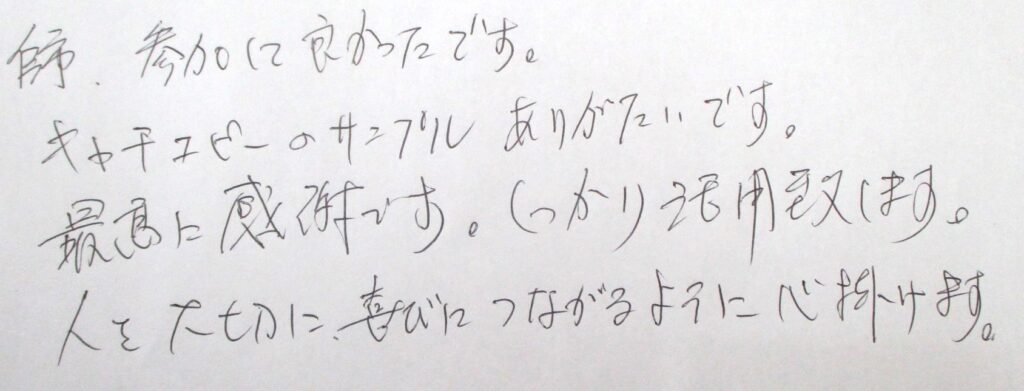 師、参加して良かったです。
キャチコピーのサンプル ありがたいです。
最高に感謝です。しっかり活用致します。
人を大切に、喜びにつながるように心掛けます。